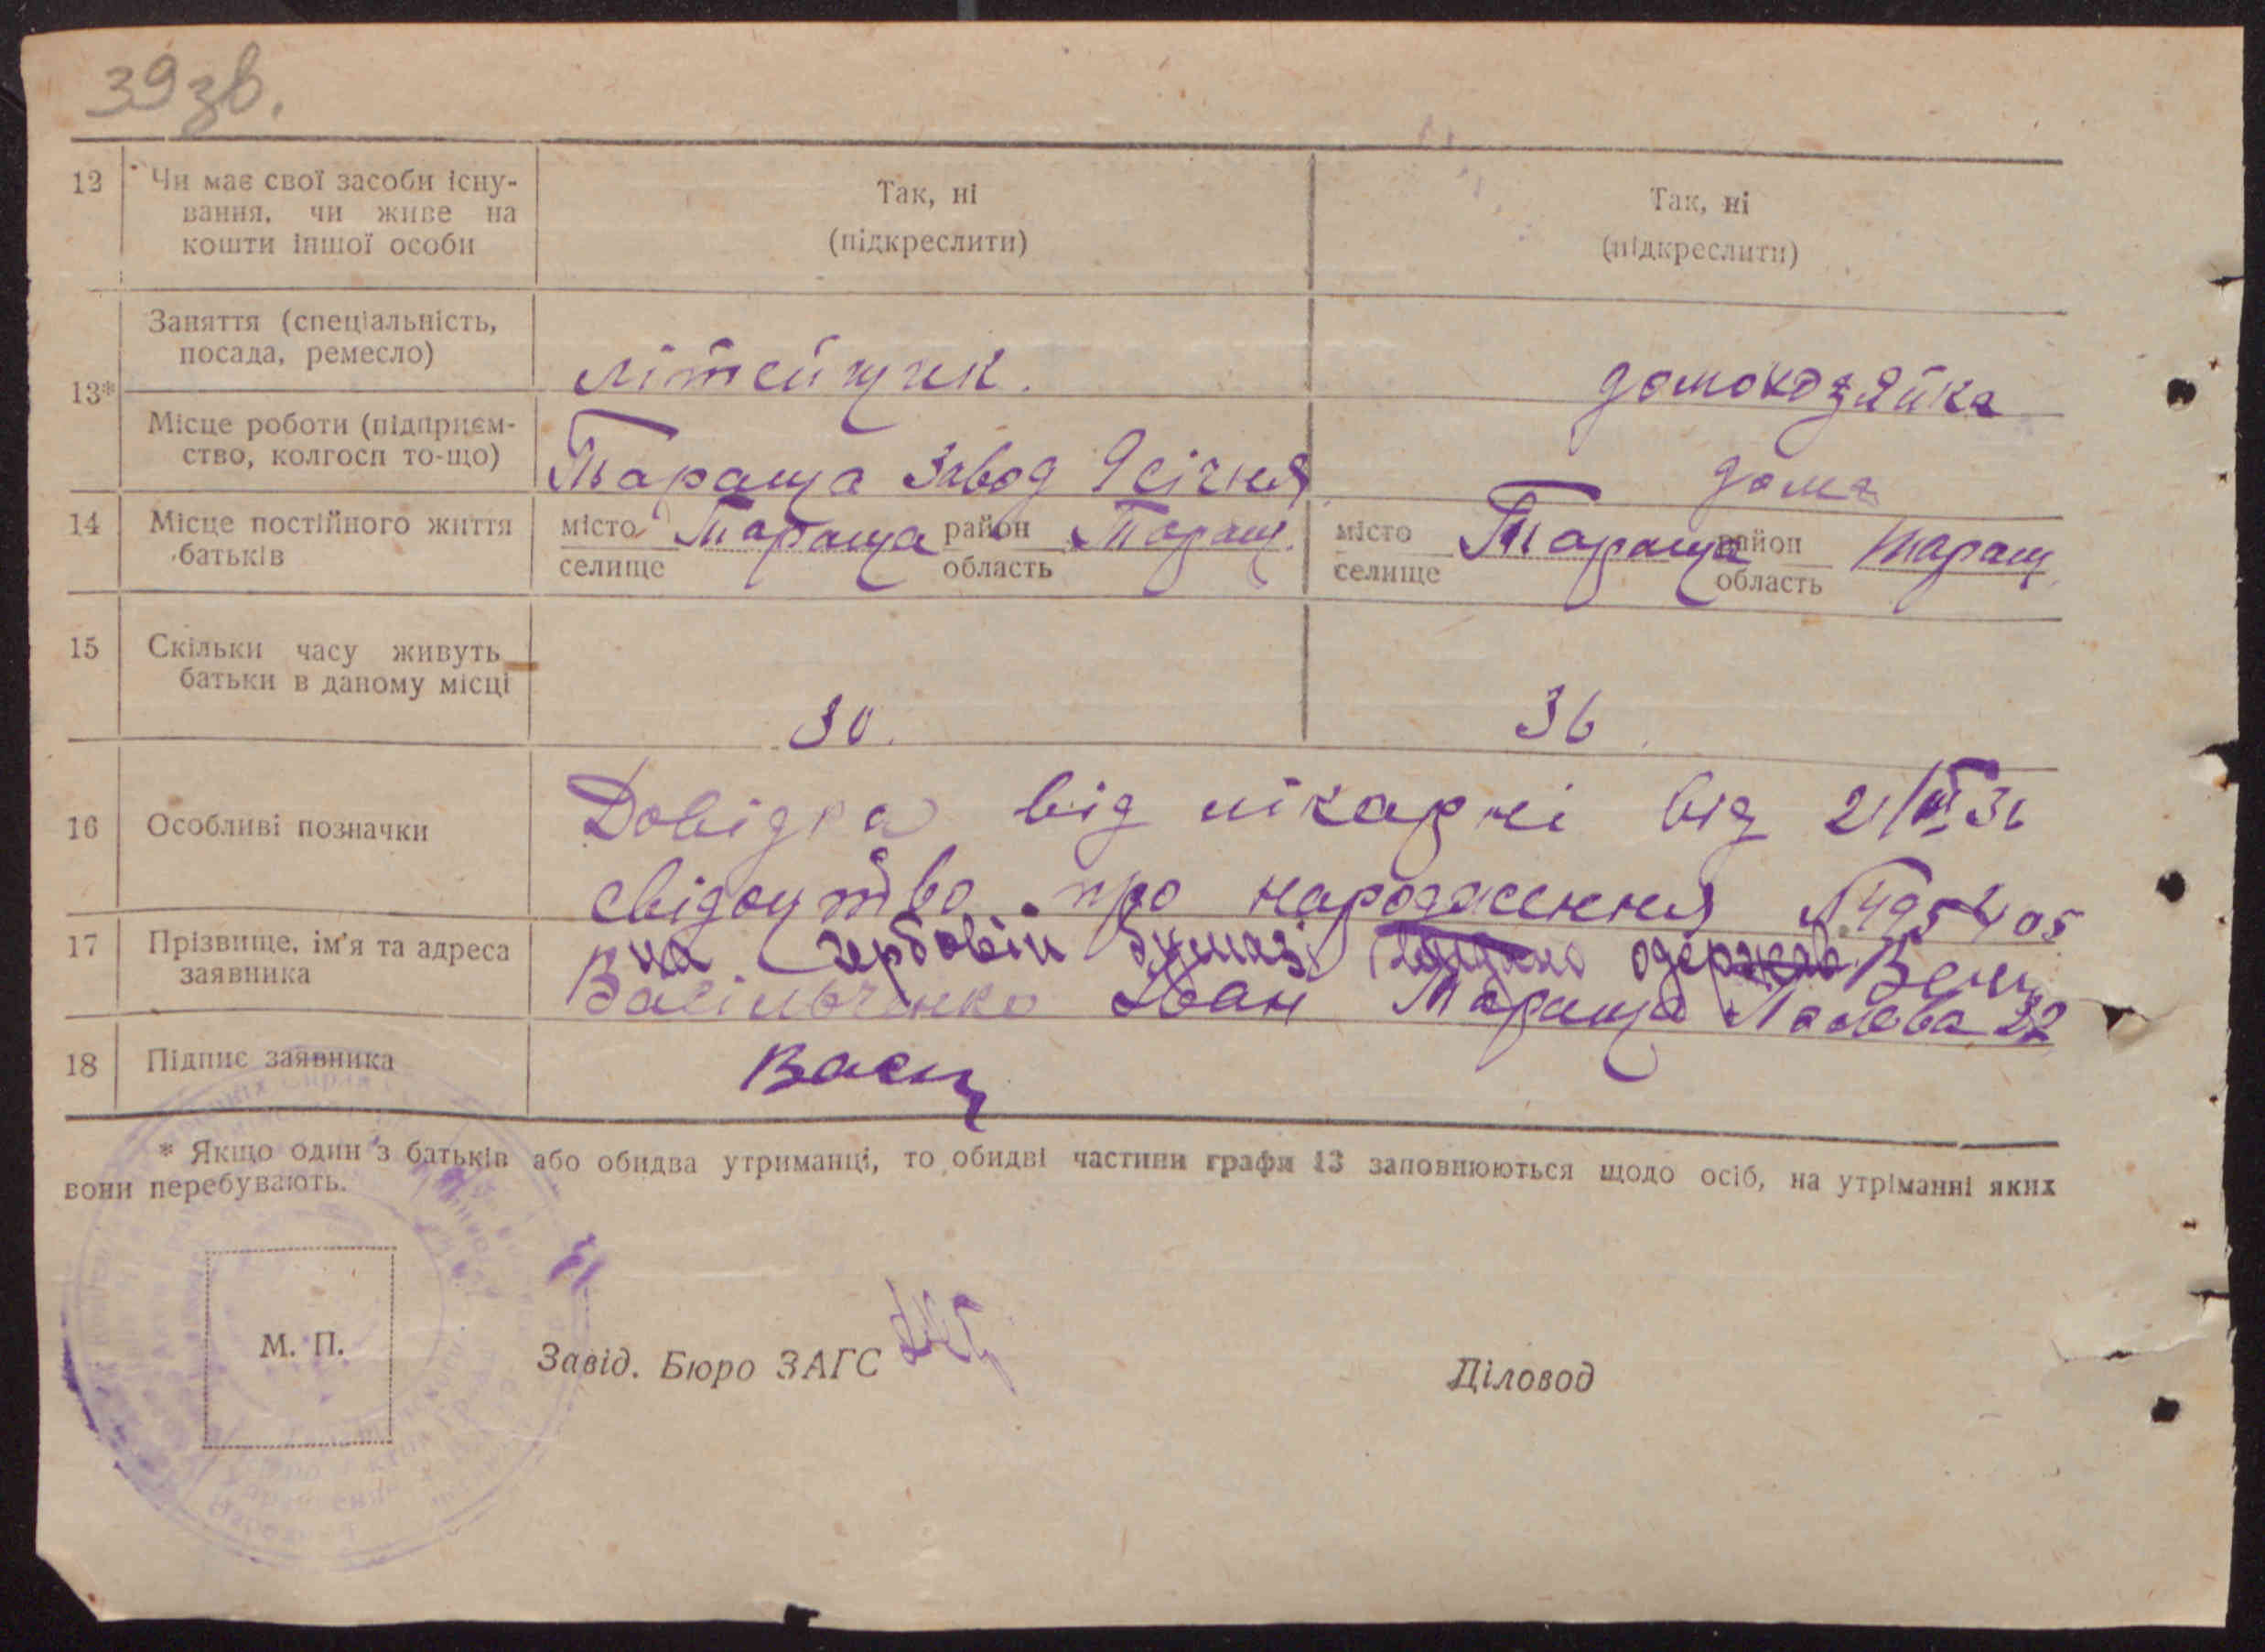 39 зв.
12 Чи має свої засоби існу-
вання, чи живе на
кошти іншої особи
Так, ні
(підкреслити)
Так, ні
(підкреслити)
13*
Заняття (спеціальність,
посада, ремесло)
літейщик.
домохозяйка
Місце роботи (підприєм-
ство, колгосп то-що)
Тараща Завод 9 січня
дома
14 Місце постійного життя
батьків
місто Тараща район Таращ.
селище область
місто Тараща район Таращ
селище область
15 Скільки часу живуть
батьки в даному місці
30.
36
16 Особливі позначки
Довідка від лікарні від 21/
свідоцтво про народження
на гербовій бумазі
17 Прізвище, ім'я та адреса
заявника
Васільченко Іван Тараща
18 Підпис заявника
Васи
* Якщо один з батьків або обидва утриманці, то обидві частини графи 13 заповнюються щодо осіб, на утріманні яких
вони перебувають.
М. П.
Завід. Бюро ЗАГС
Діловод